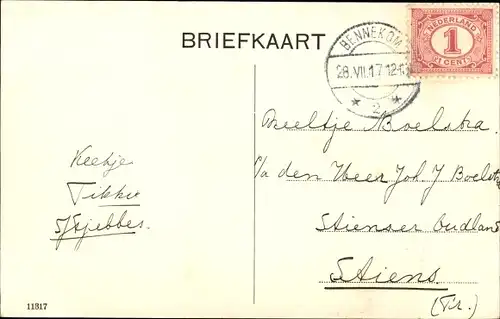 BRIEFKAART
BENNEKOM
28.VII.17 12-1
2
NEDERLAND
1
1 CENT
Boelstra.
p/a den Heer Joh. J Boelstra
Stienser Oudland
Stiens.
(Fr.)
Keetje
Tikky
Sjtjebbes.
11317